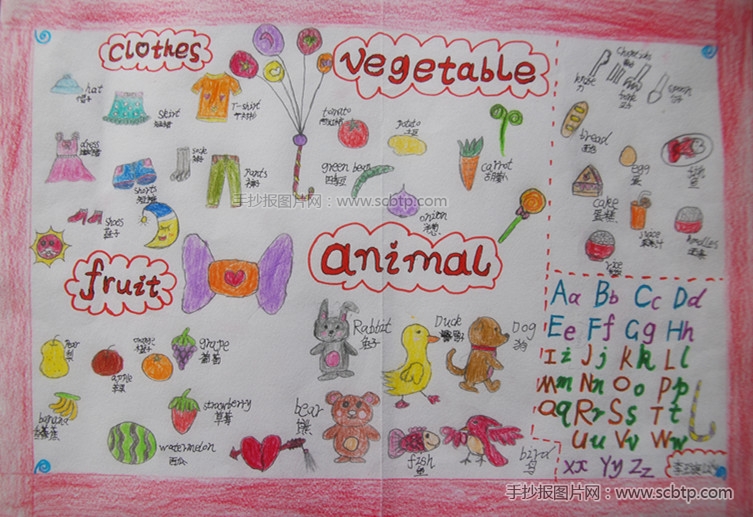 clothes
hat
帽子
skirt
短裙
T-shirt
dress
sock
pants
shorts
shoes
鞋子
vegetable
tomato
西红柿
potato
土豆
green bean
四季豆
carrot
胡萝卜
onion
洋葱
手抄报图片网：www.scbtp.com
chopsticks
knife
刀
fork
叉子
spoon
勺子
bread
面包
egg
蛋
fish
cake
蛋糕
juice
果汁
noodles
rice
fruit
pear
梨
apple
苹果
orange
橙子
grape
葡萄
banana
香蕉
strawberry
草莓
watermelon
西瓜
animal
Rabbit
兔子
Duck
鸭子
Dog
狗
bear
熊
fish
鱼
bird
鸟
Aa Bb Cc Dd
Ee Ff Gg Hh
Ii Jj Kk Ll
Mm Nn Oo Pp
Qq Rr Ss Tt
Uu Vv Ww
Xx Yy Zz
手抄报图片网：www.scbtp.com